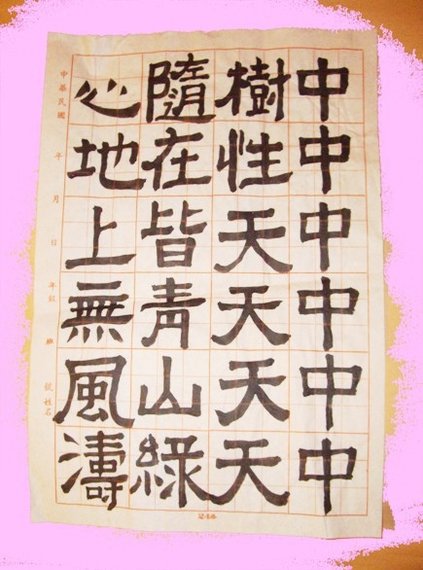 中中中中中中
樹性天天天天
隨在皆青山綠
心地上無風濤
中華民國 年 月 日 年級 班 號 姓名